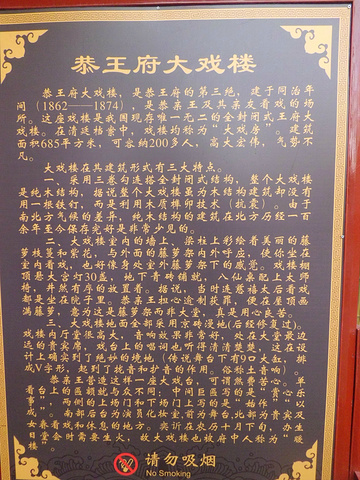 恭王府大戏楼
恭王府大戏楼，是恭王府的第三绝，建于同治年
间（1862——1874），是恭亲王及其亲友看戏的场
所。这座戏楼是我国现存唯一无二的全封闭式王府大
戏楼。在清廷档案中，戏楼均称为“大戏房”。建筑
面积685平方米，可容纳200多人，高大宏伟，气势不
凡。
大戏楼在其建筑形式有三大特点。
一、采用三卷勾连搭全封闭式结构，整个大戏楼
是纯木结构，据说整个大戏楼虽为木结构建筑却没有
用一根铁钉，而是利用木质榫卯技术（抗震）。由于
南北方气候的差异，纯木结构的建筑在北方历经一百
余年至今保存完好是非常少见的。
二、大戏楼室内的墙上、梁柱上彩绘着美丽的藤
萝枝蔓和紫花，与外面的藤萝架内外呼应，使你坐在
室内看戏，也好像身处室外藤萝架下的感觉。戏楼棚
顶悬大宫灯30盏，地下青砖铺就，八仙桌配上太师
椅，井然有序的放置着。据说，当时连慈禧太后看戏
都是坐在院子里。恭亲王担心逾制获罪，便在屋顶画
满藤萝，意为这是藤萝架而非大堂，真是用心良苦。
三、大戏楼地面全部采用京砖漫地(后经修复过)。
戏楼内厅堂很高大，音响效果非常好，处在大堂最边
远的贵宾席，戏台上的唱词也听得清清楚楚，这在设
计上确实到了绝妙的境地（传说舞台下有9口大缸，排
成V字形，起到了拢音和护音的作用。俗称土音响）。
恭亲王营造这样一座大戏台，可谓煞费苦心。单
看台上的匾额就与众不同：中间巨匾书的是“赏心乐
事”，两侧的上场门和下场门上写的是“始作”“以
成”。南部后台为演员化妆室,前为舞台,北部为贵宾及
女眷看戏和休息的地方。奕訢在农历十月下旬，办生
日堂会时需要生火，故大戏楼也被府中人称为“暖
楼”。
请勿吸烟
No Smoking